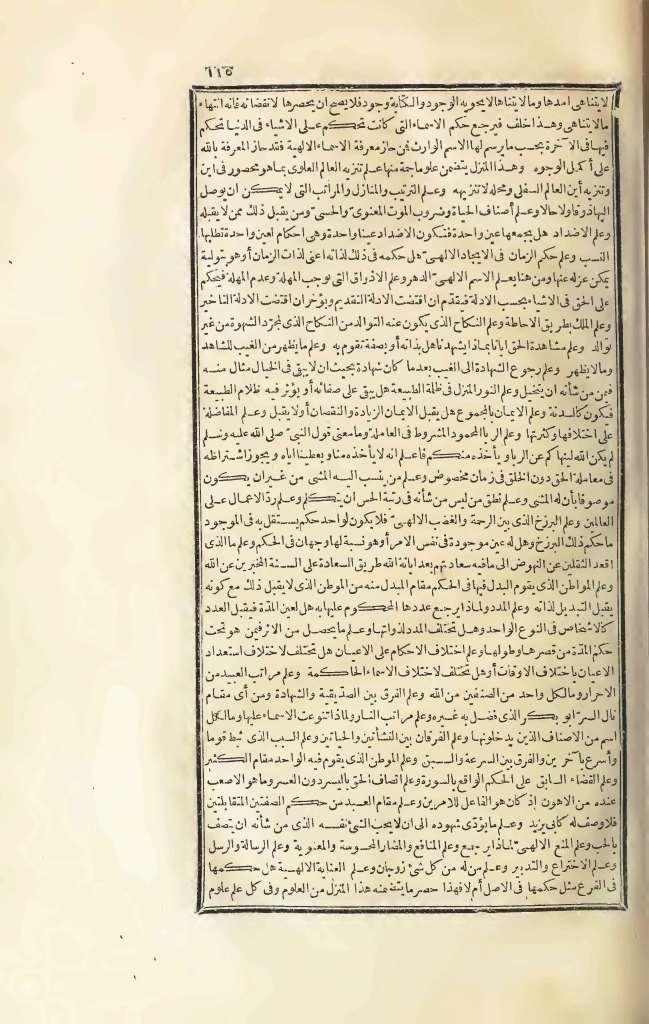 ٦١٥
لا يتناهى أمدها وما لا يتناهى لا يحويه الوجود والكتابة وجود فلا يصح ان يحصرها لانقضائه فانه انتهاء
ما لا يتناهى وهذا خلف فيرجع حكم الاسماء التى كانت تتحكم على الاشياء فى الدنيا تحكم
فيها فى الآخرة بحسب ما يرسم لها الاسم الوارث فمن حاز معرفة الاسماء الالهية فقد حاز المعرفة بالله
على أكمل الوجوه وهذا المنزل يتضمن علوما جمة منها علم تنزيه العالم العلوى بما هو محصور فى أين
وتنزيه أين العالم السفلى ومحله لا تنزيهه وعلم الترتيب والمنازل والمراتب التى لا يمكن ان يوصل
اليها ذوقا ولا حالا وعلم أصناف الحياة وضروب الموت المعنوى والحسى ومن يقبل ذلك ممن لا يقبله
وعلم الاضداد هل يجمعها عين واحدة فتكون الاضداد عينا واحدة وهى احكام لعين واحدة تطلبها
النسب وعلم حكم الزمان فى الايجاد الالهى هل حكمه فى ذلك لذاته اعنى لذات الزمان أو هو بتولية
يمكن عزله عنها ومن هنا يعلم الاسم الالهى الدهر وعلم الاذواق التى توجب المهلة وعدم المهلة فيحكم
على الحق فى الاشياء بحسب الادلة فيقدم ان اقتضت الادلة التقديم ويؤخر ان اقتضت الادلة التأخير
وعلم الملك بطريق الاحاطة وعلم النكاح الذى يكون عنه التوالد من النكاح الذى لمجرد الشهوة من غير
توالد وعلم مشاهدة الحق ايانا بماذا يشهدنا هل بذاته أو بصفة تقوم به وعلم ما يظهر من الغيب للشاهد
وما لا يظهر وعلم رجوع الشهادة الى الغيب بعد ما كان شهادة بحيث ان لا يبقى فى الخيال مثال منه
فيمن من شأنه ان يتخيل وعلم النور المنزل فى ظلمة الطبيعة هل يبقى على صفائه أو يؤثر فيه ظلام الطبيعة
فيكون كالسدفة وعلم الايمان بالمجموع هل يقبل الايمان الزيادة والنقصان أو لا يقبل وعلم المفاضلة
على اختلافها وكثرتها وعلم الربا المحمود المشروط فى المعاملة وما معنى قول النبى صلى الله عليه وسلم
لم يكن الله لينهاكم عن الربا ويأخذه منكم فاعلم انه لا يأخذه منا ويعطينا اياه ويجوز اشتراطه
فى معاملة الحق دون الخلق فى زمان مخصوص وعلم من ينسب اليه المشى من غير ان يكون
موصوفا بأن له المشى وعلم نطق من ليس من شأنه فى رتبة الحس ان يتكلم وعلم ردّ الاعمال على
العالمين وعلم البرزخ الذى بين الرحمة والغضب الالهى فلا يكون لواحد حكم يستقل به فى الموجود
ما حكم ذلك البرزخ وهل له عين موجودة فى نفس الامر أو هو نسبة لها وجهان فى الحكم وعلم ما الذى
اقعد الثقلين عن النهوض الى ما فيه سعادتهم بعد ابانة الله طريق السعادة على السنة المخبرين عن الله
وعلم المواطن الذى يقوم البدل فيها فى الحكم مقام المبدل منه من الموطن الذى لا يقبل ذلك مع كونه
يقبل التبديل لذاته وعلم المدد ولماذا يرجع عددها المحكوم عليها به هل لعين المدّة فيقبل العدد
كالاشخاص فى النوع الواحد وهل تختلف المدد لذواتها وعلم ما يحصل من الاثر فيمن هو تحت
حكم المدّة من قصرها وطولها وعلم اختلاف الاحكام على الاعيان هل تختلف لاختلاف استعداد
الاعيان باختلاف الاوقات أو هل تختلف لاختلاف الاسماء الحاكمة وعلم مراتب العبيد من
الاحرار وما لكل واحد من الصنفين من الله وعلم الفرق بين الصديقية والشهادة ومن أى مقام
نال السرّ ابو بكر الذى فضل به غيره وعلم مراتب النار ولماذا تنوعت الاسماء عليها وما لكل
اسم من الاصناف الذين يدخلونها وعلم الفرقان بين النشأتين والحياتين وعلم السبب الذى ثبط قوما
وأسرع بآخرين والفرق بين السرعة والسبق وعلم الموطن الذى يقوم فيه الواحد مقام الكثير
وعلم القضاء السابق على الحكم الواقع بالسورة وعلم اتصاف الحق باليسر دون العسر وما هو الاصعب
عنده من الاهون إذ كان هو الفاعل للامرين وعلم مقام العبد من حكم الصفتين المتقابلتين
فلا وصف له كأبى يزيد وعلم ما يؤدى شهوده الى ان لا يحب الشئ نفسه الذى من شأنه ان يتصف
بالحب وعلم المنع الالهى لماذا يرجع وعلم المنافع والمضار المحسوسة والمعنوية وعلم الرسالة والرسل
وعلم الاختراع والتدبير وعلم من له من كل شئ زوجان وعلم العناية الالهية هل حكمها
فى الفرع مثل حكمها فى الاصل أم لا فهذا حصر ما يتضمنه هذا المنزل من العلوم وفى كل علم علوم